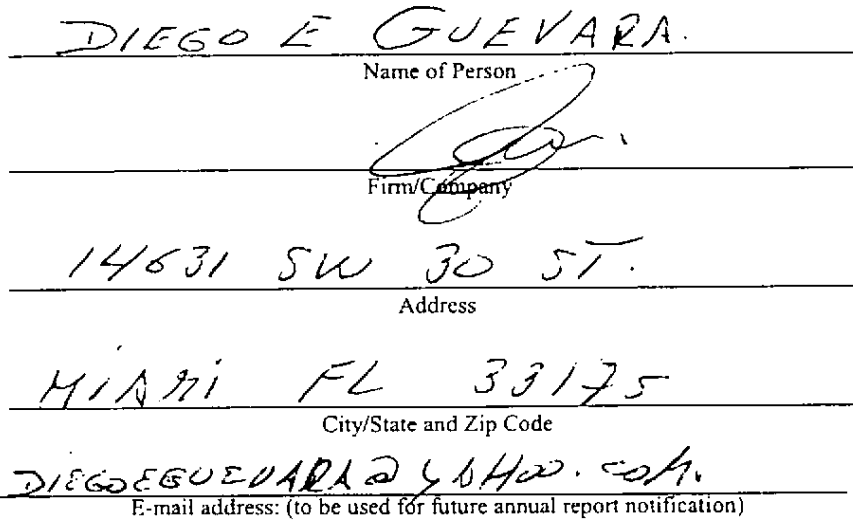 DIEGO E GUEVARA.
Name of Person
Firm/Company
14631 SW 30 ST.
Address
MiAMi FL 33175
City/State and Zip Code
DIEGOEGUEVARA@YAHOO.COM.
E-mail address: (to be used for future annual report notification)